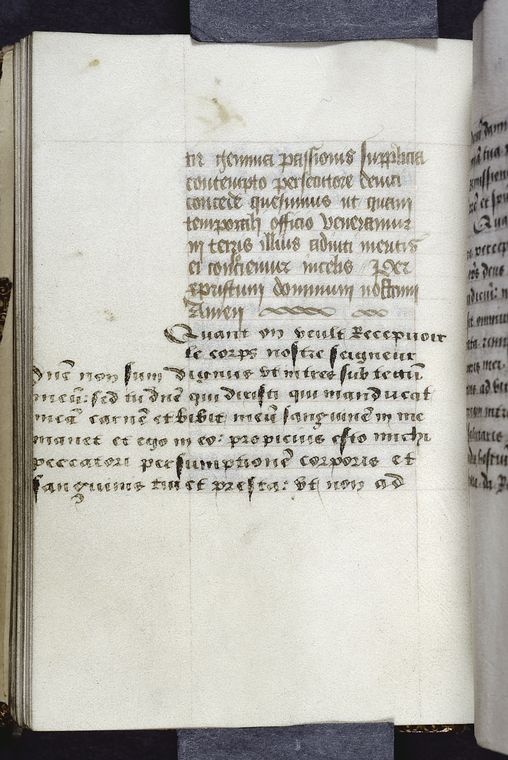 tri gemina passionis supplicia
contempto persecutore devici
concede quesumus ut quam
temporali officio veneramur
in terris illius adiuti meritis
ei in celis Per
xpristum dominum nostrum
Amen
Quant on veult Recepvoir
le corps nostre seigneur
Dn̄e non sum dignus ut intres sub tectū
meū: sed tu dn̄e qui dixisti qui manducat
meā carnē et bibit meū sanguinē in me
manet et ego in eo: propicius esto michi
peccatori per sumptionē corporis et
sanguinis tui et presta: ut non ad